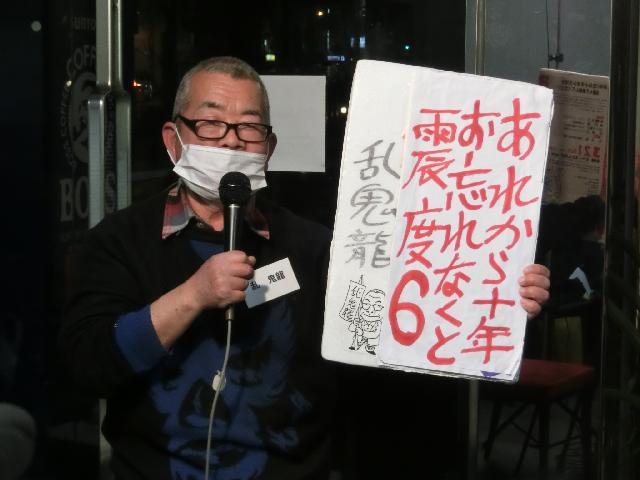 あれから十年
お忘れなくと
震度6
乱鬼龍
乱鬼龍
COFFEE
BO